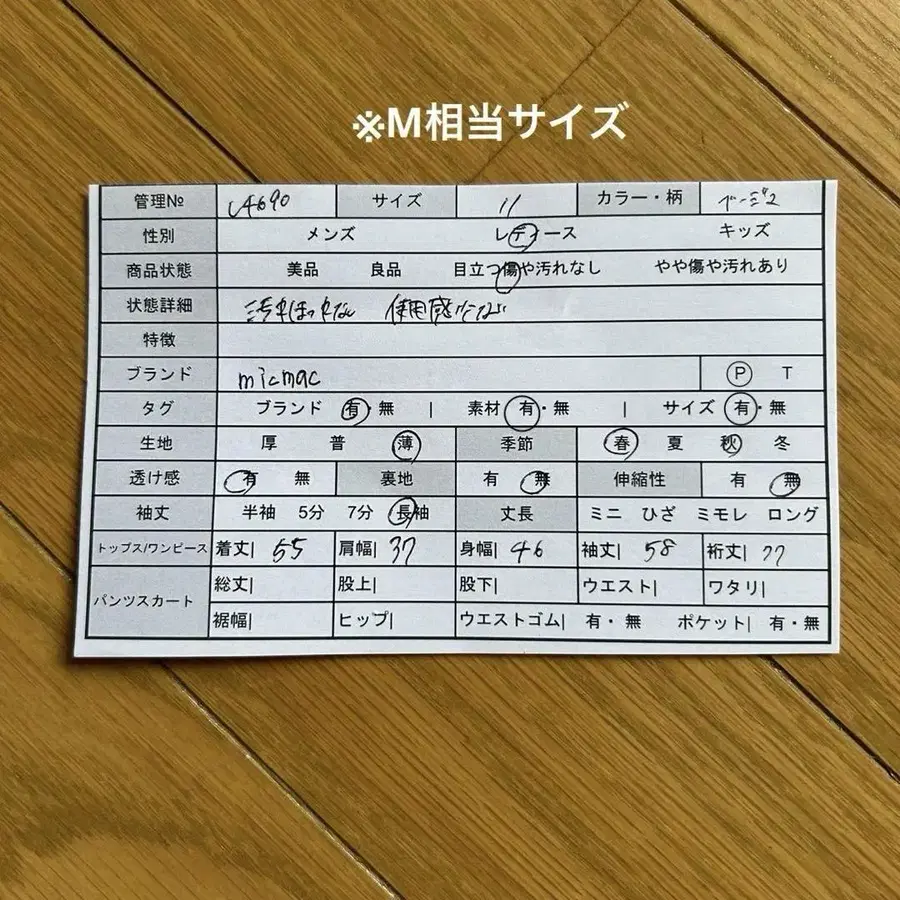 ※M相当サイズ
管理№ U4690 サイズ 11 カラー・柄 ベージュ
性別 メンズ レディース キッズ
商品状態 美品 良品 目立つ傷や汚れなし やや傷や汚れあり
状態詳細 使用感少ない
特徴
ブランド micmac P T
タグ ブランド 有・無 | 素材 有・無 | サイズ 有・無
生地 厚 普 薄 季節 春 夏 秋 冬
透け感 有 無 裏地 有 無 伸縮性 有 無
袖丈 半袖 5分 7分 長袖 丈長 ミニ ひざ ミモレ ロング
トップス/ワンピース 着丈| 55 肩幅| 37 身幅| 46 袖丈| 58 裄丈| 77
パンツスカート 総丈| 股上| 股下| ウエスト| ワタリ|
裾幅| ヒップ| ウエストゴム| 有・無 ポケット| 有・無